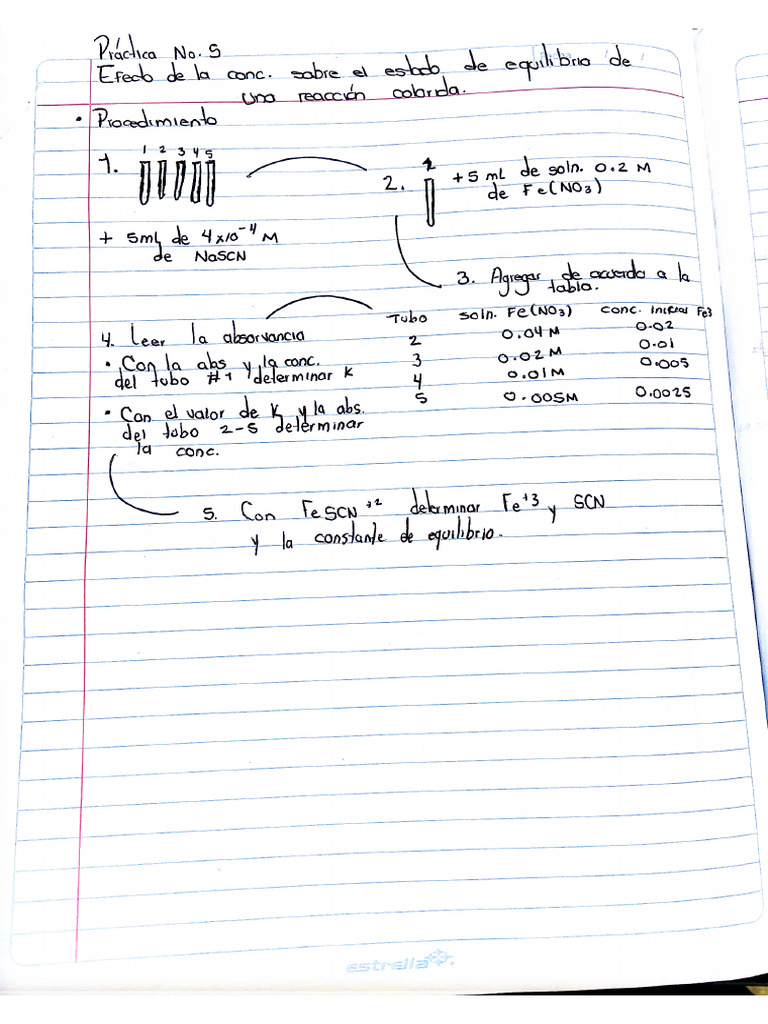 Práctica No. 5
Efecto de la conc. sobre el estado de equilibrio de
una reacción colorida.
• Procedimiento
1. 1 2 3 4 5
+ 5ml de 4x10⁻⁴ M
de NaSCN
2. 1 + 5 mL de soln. 0.2 M
de Fe(NO3)
3. Agregar de acuerdo a la
tabla.
Tubo soln. Fe(NO3) conc. inicial Fe3
2 0.04 M 0.02
3 0.02 M 0.01
4 0.01 M 0.005
5 0.005M 0.0025
4. Leer la absorvancia
• Con la abs y la conc.
del tubo #1 determinar K
• Con el valor de K y la abs.
del tubo 2-5 determinar
la conc.
5. Con FeSCN⁺² determinar Fe⁺³ y SCN
y la constante de equilibrio.
estrella